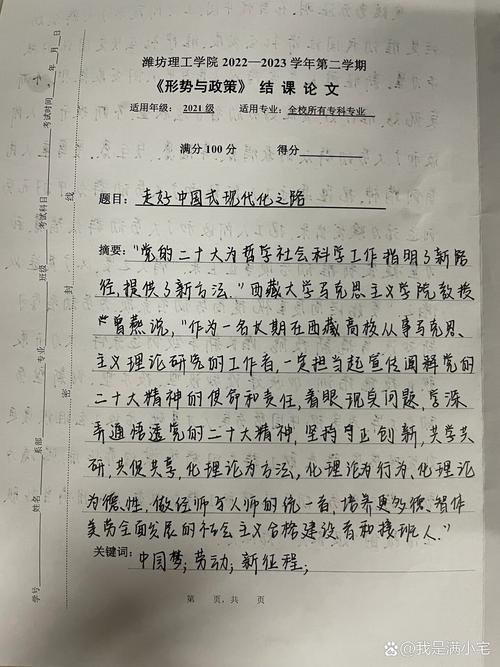 潍坊理工学院 2022—2023 学年第二学期
《形势与政策》 结 课 论 文
适用年级: 2021 级 适用专业: 全校所有专科专业
满分 100 分 得分
题目: 走好中国式现代化之路
摘要: "党的二十大为哲学社会科学工作指明了新路
径,提供了新方法."西藏大学马克思主义学院教授
曾燕说,"作为一名长期在西藏高校从事马克思
主义理论研究的工作者,一定担当起宣传阐释党的
二十大精神的使命和责任,着眼现实问题,学深
弄通悟透党的二十大精神,坚持守正创新,共学共
研,共促共享,化理论为方法,化理论为行为,化理论
为德性,做经师与人师的统一者,培养更多德、智体
美劳全面发展的社会主义合格建设者和接班人."
关键词: 中国梦; 劳动; 新征程;
第 页,共 页
考试时间: 年 月 日
考试科目
班级
专业
系部
姓名
学号
密 封 线
我是满小宅